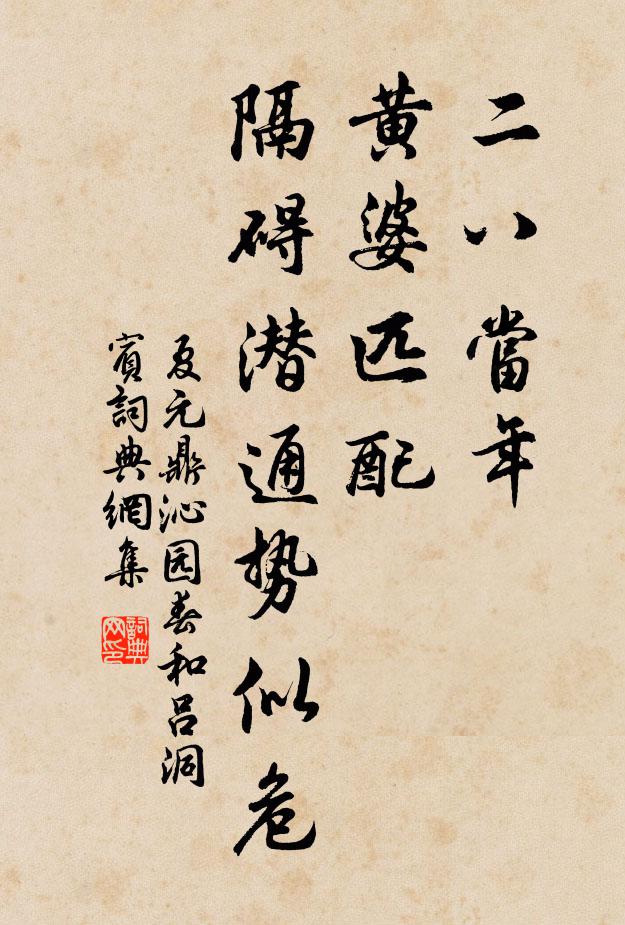 二八當年
黃婆匹配
隔碍潜通势似危
夏元鼎沁园春和吕洞
賓詞典網集
詞典网印